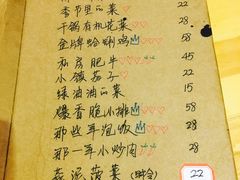 季节里的菜 22
干锅有机花菜 28
金牌蛤蜊鸡 58
私房肥牛 45
小镇茄子 22
绿油油的菜 22
爆香脆小排 58
那些年泡饭 28
那一年小炒肉 28
菠菜 22